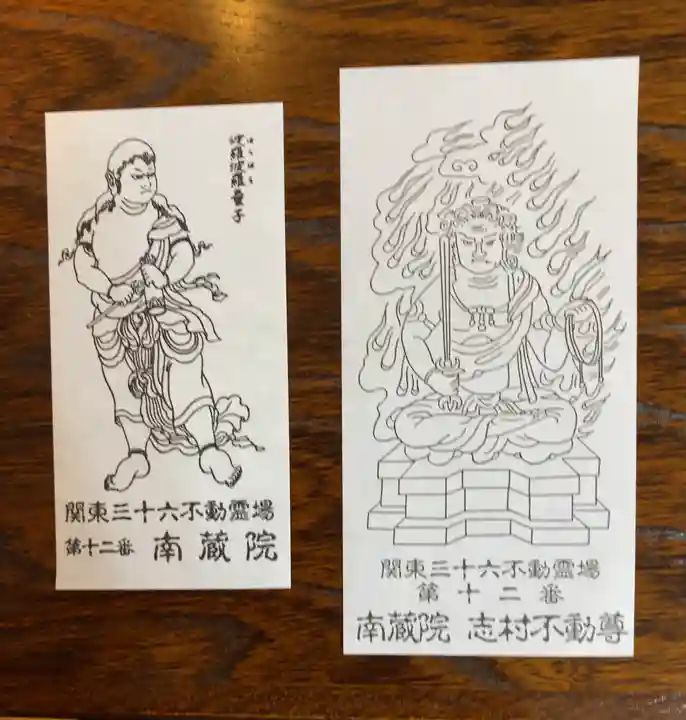 波羅波羅童子
はらはら
関東三十六不動霊場
第十二番 南蔵院
関東三十六不動霊場
第十二番
南蔵院 志村不動尊